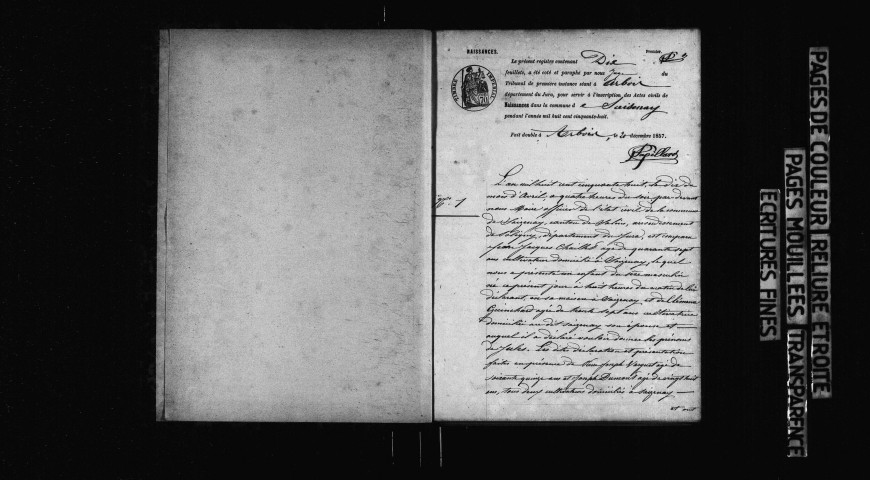 NAISSANCES.
Premier.
Le présent registre contenant Dix
feuillets, a été coté et paraphé par nous Juge du
Tribunal de première instance séant à Arbois
département du Jura, pour servir à l'inscription des Actes civils de
Naissances dans la commune d e Saizenay
pendant l'année mil huit cent cinquante-huit.
Fait double à Arbois, le 20 décembre 1857.
TIMBRE IMPERIAL
N.º 1
L'an mil huit cent cinquante huit, le dix du
mois d'Avril, a quatre heures du soir, par devant
nous Maire officier de l'état civil de la commune
de Saizenay, canton de Salins, arrondissement
de Poligny, département du Jura, est comparu
Jacques agé de quarante sept
ans cultivateur domicilié a Saizenay, lequel
nous a présenté un enfant du sexe masculin
né ce présent jour à huit heures du matin de lui
déclarant, en sa maison a Saizenay et de Etiennette
Guinchard agée de trente sept ans cultivatrice
domiciliée au dit Saizenay son épouse et
auquel il a déclaré vouloir donner les prénoms
de Jules. Les dites déclaration et présentation
faites en présence de Jean Joseph agé de
soixante quinze ans et Joseph Dumont agé de vingt huit
ans, tous deux cultivateurs domiciliés à Saizenay
et ont
PAGES DE COULEUR RELIURE ETROITE
PAGES MOUILLEES TRANSPARENCE
ECRITURES FINES